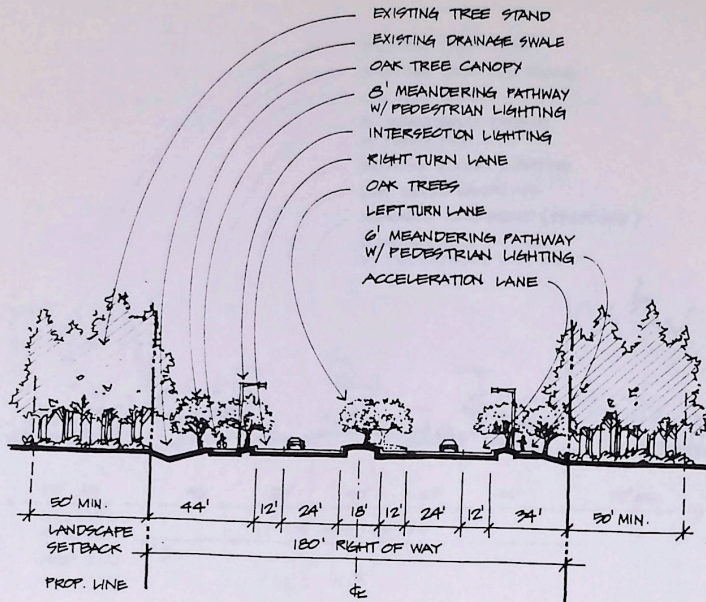 EXISTING TREE STAND
EXISTING DRAINAGE SWALE
OAK TREE CANOPY
8' MEANDERING PATHWAY
W/ PEDESTRIAN LIGHTING
INTERSECTION LIGHTING
RIGHT TURN LANE
OAK TREES
LEFT TURN LANE
6' MEANDERING PATHWAY
W/ PEDESTRIAN LIGHTING
ACCELERATION LANE
50' MIN. 44' 12' 24' 18' 12' 24' 12' 34' 50' MIN.
LANDSCAPE
SETBACK
180' RIGHT OF WAY
PROP. LINE
℄